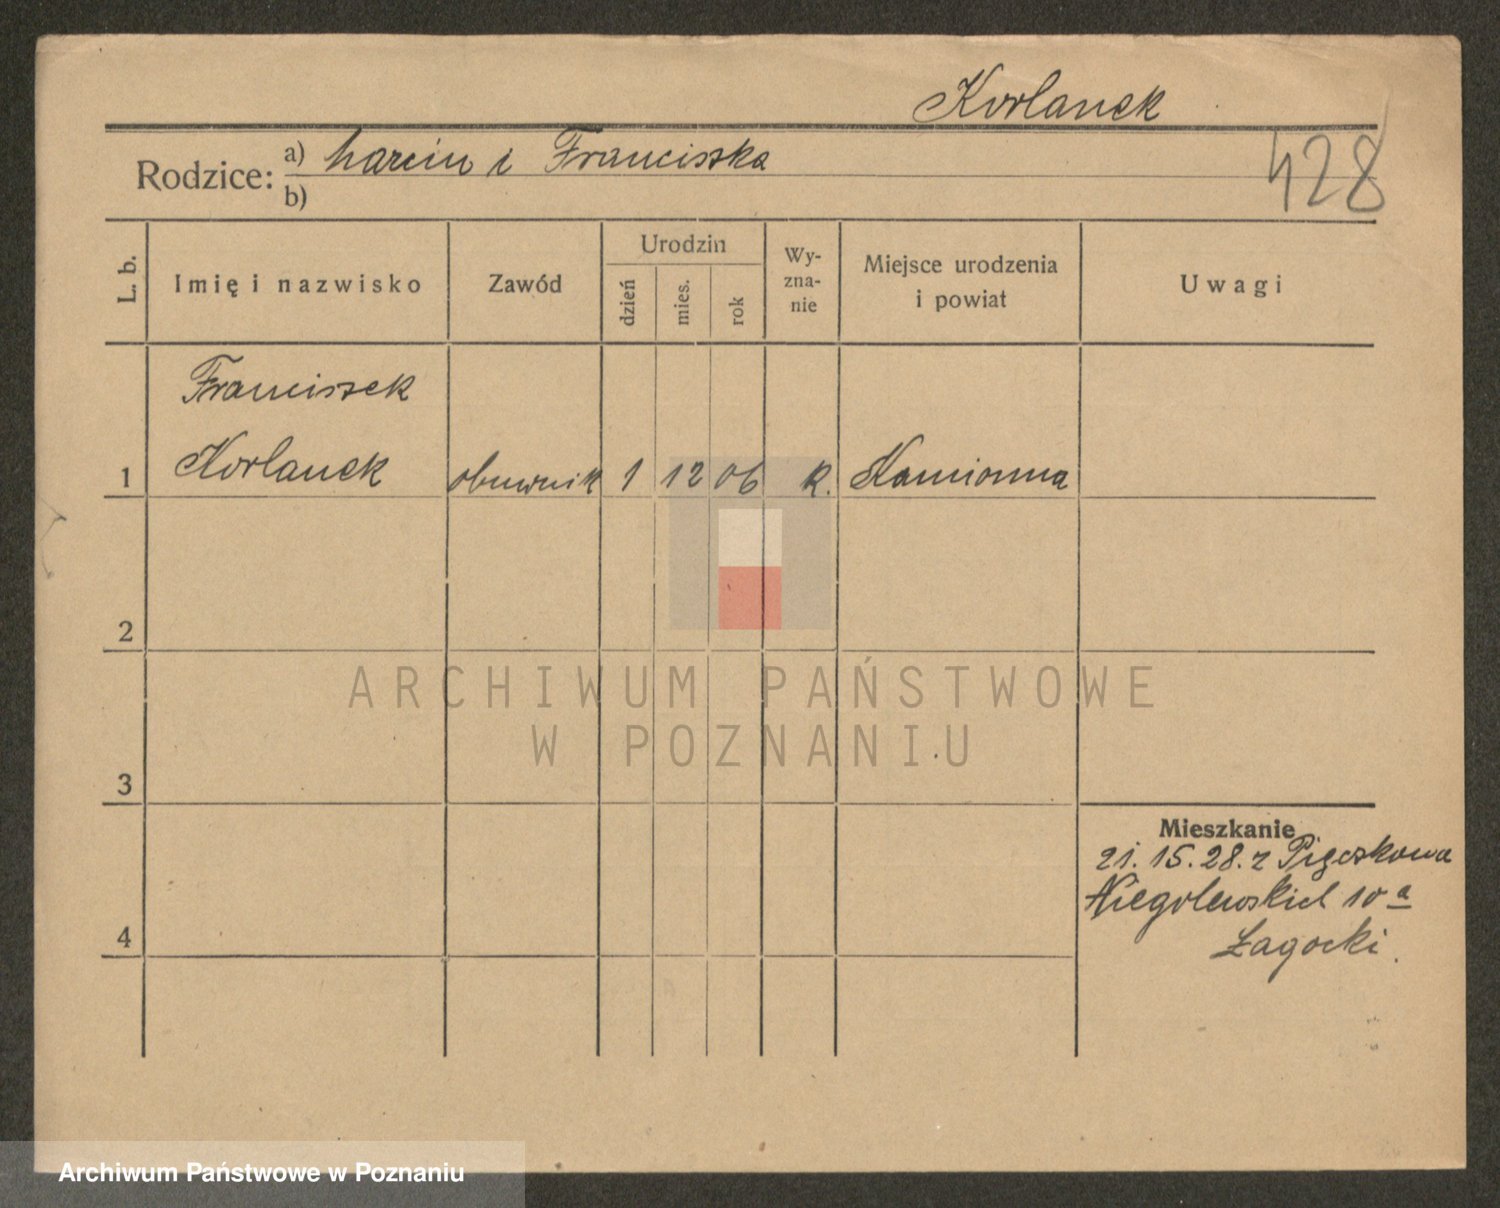 Korlanek
Rodzice: a) Marcin i Franciszka
b)
428
L. b. Imię i nazwisko Zawód Urodzin dzień mies. rok Wy-zna-nie Miejsce urodzenia i powiat Uwagi
Franciszek
1 Korlanek obuwnik 1 12 06 k. Kamionna
2
ARCHIWUM PAŃSTWOWE
W POZNANIU
3
Mieszkanie
21. 15. 28. z Pigczkowa
Niegolewskich 10 a
4
Łagocki.
Archiwum Państwowe w Poznaniu